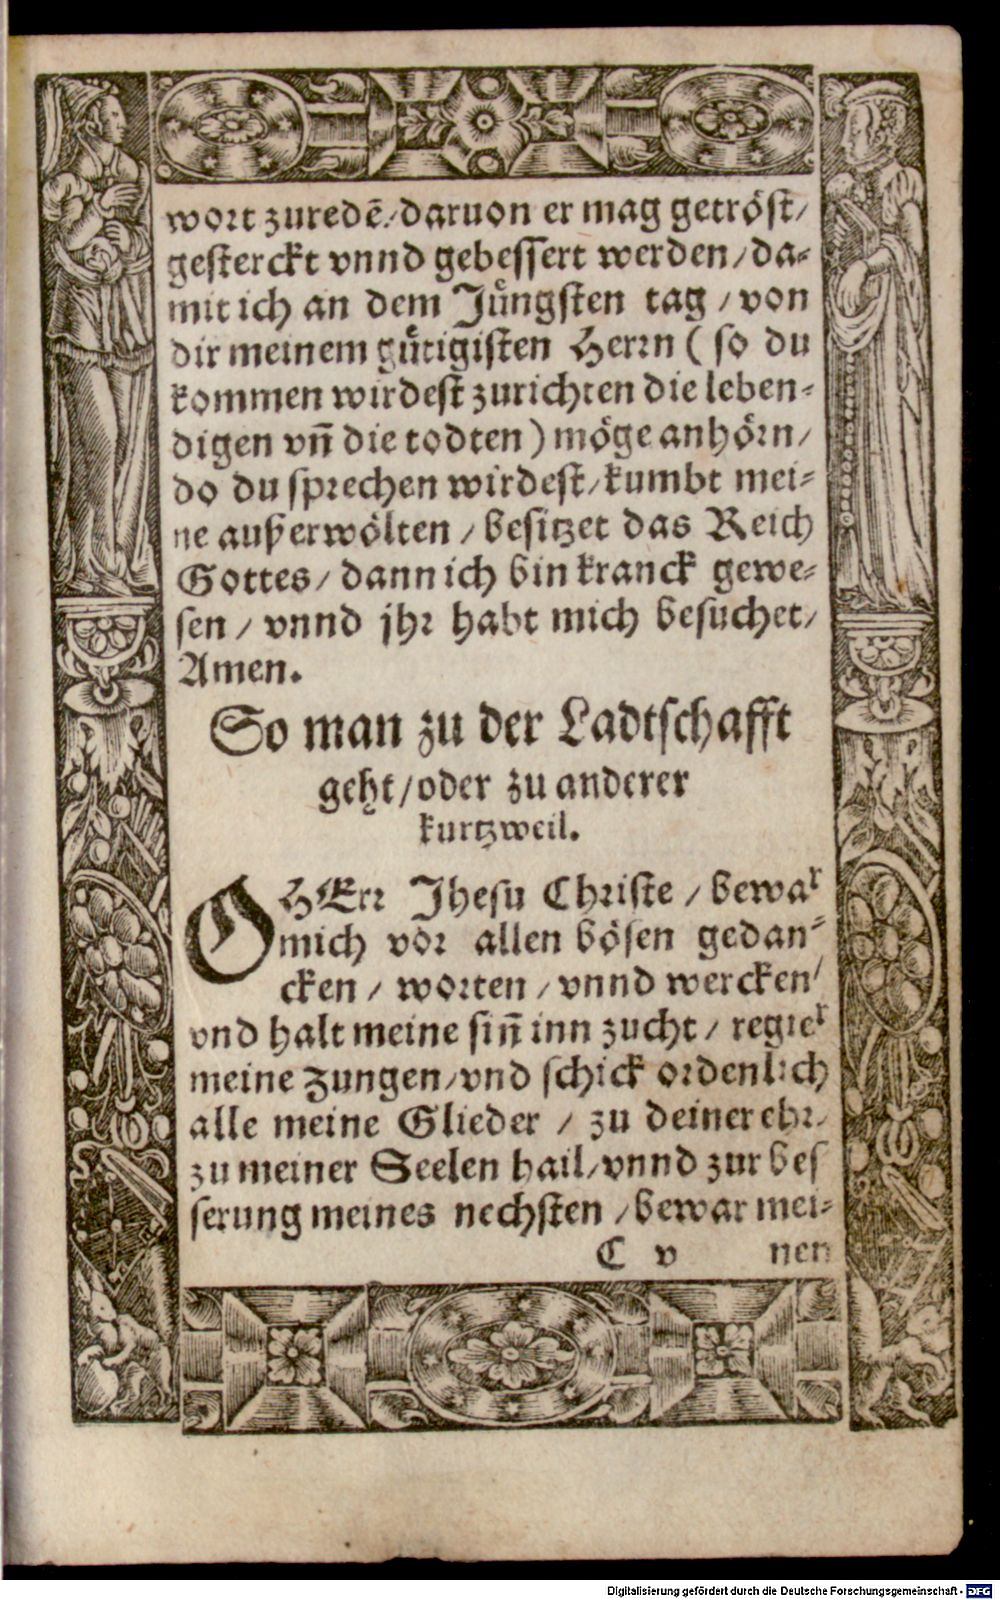 wort zuredē / daruon er mag getröst /
gesterckt vnnd gebessert werden / da=
mit ich an dem Jüngsten tag / von
dir meinem gütigisten Herrn ( so du
kommen wirdest zurichten die leben=
digen vn̄ die todten ) möge anhörn /
do du sprechen wirdest / kumbt mei=
ne außerwölten / besitzet das Reich
Gottes / dann ich bin kranck gewe=
sen / vnnd jhr habt mich besuchet /
Amen.
So man zu der Ladtschafft
geht / oder zu anderer
kurtzweil.
O HErr Jhesu Christe / bewar
mich vor allen bösen gedan=
cken / worten / vnnd wercken /
vnd halt meine sin̄ inn zucht / regier
meine Zungen / vnd schick ordenlich
alle meine Glieder / zu deiner ehr /
zu meiner Seelen hail / vnnd zur bes
serung meines nechsten / bewar mei=
C v nen
Digitalisierung gefördert durch die Deutsche Forschungsgemeinschaft - DFG